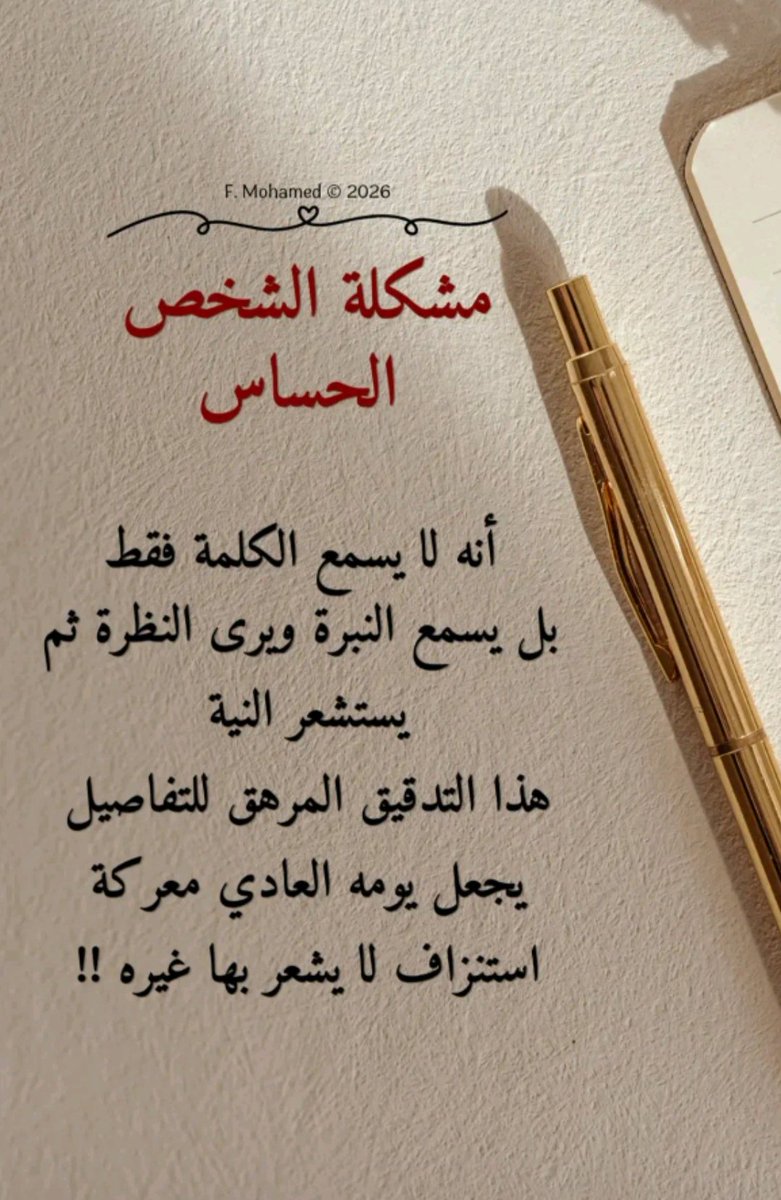 F. Mohamed © 2026
مشكلة الشخص
الحساس
أنه لا يسمع الكلمة فقط
بل يسمع النبرة ويرى النظرة ثم
يستشعر النية
هذا التدقيق المرهق للتفاصيل
يجعل يومه العادي معركة
استنزاف لا يشعر بها غيره !!